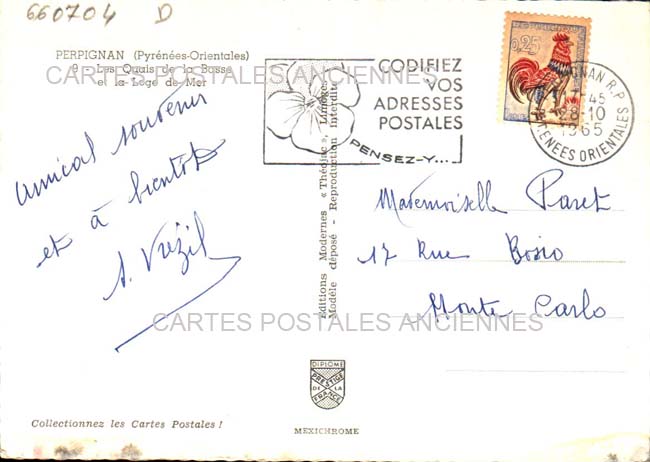 660704 D
PERPIGNAN (Pyrénées-Orientales)
9 - Les Quais de la Basse
et la Loge de Mer
CARTES POSTALES ANCIENNES
CODIFIEZ
VOS
ADRESSES
POSTALES
PENSEZ-Y...
0,25
IGNAN R.P.
17-45
28-10
1965
PYRENEES ORIENTALES
Amical souvenir
et à bientôt
Editions Modernes « Théojac », Limoges
Modèle déposé - Reproduction interdite
Mademoiselle Paret
17 Rue Bosio
Monte Carlo
CARTES POSTALES ANCIENNES
DIPLOME
PRESTIGE
DE LA
FRANCE
Collectionnez les Cartes Postales !
MEXICHROME